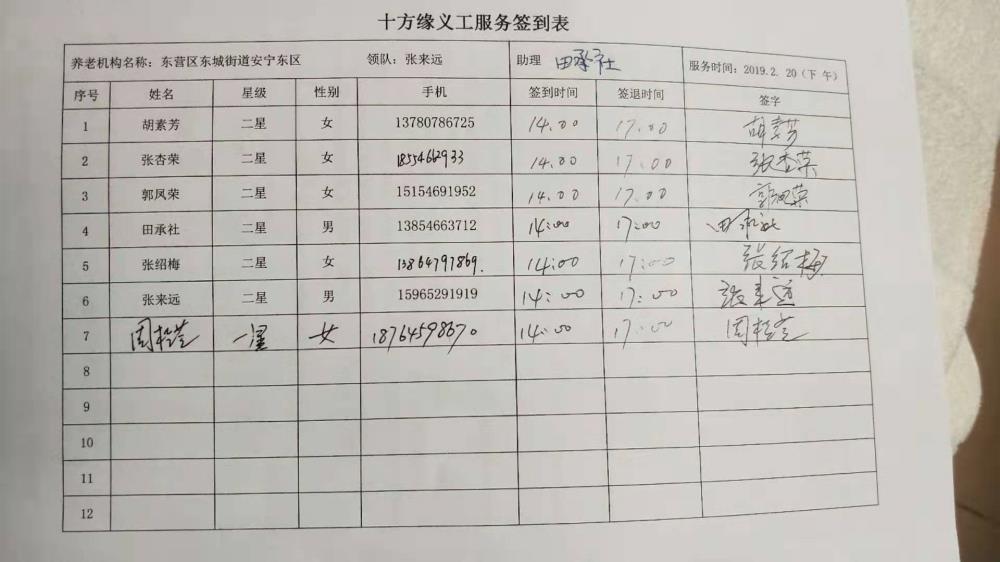 十方缘义工服务签到表
养老机构名称：东营区东城街道安宁东区 领队：张来远 助理 田承社 服务时间：2019.2. 20（下 午）
序号 姓名 星级 性别 手机 签到时间 签退时间 签字
1 胡素芳 二星 女 13780786725 14.00 17.00 胡素芳
2 张杏荣 二星 女 14.00 17.00 张杏荣
3 郭凤荣 二星 女 15154691952 14.00 17.00 郭凤荣
4 田承社 二星 男 13854663712 14:00 17:00 田承社
5 张绍梅 二星 女 13864797869. 14:00 17:00 张绍梅
6 张来远 二星 男 15965291919 14:00 17:00 张来远
7 一星 女 18764598670 14:00 17:00
8
9
10
11
12